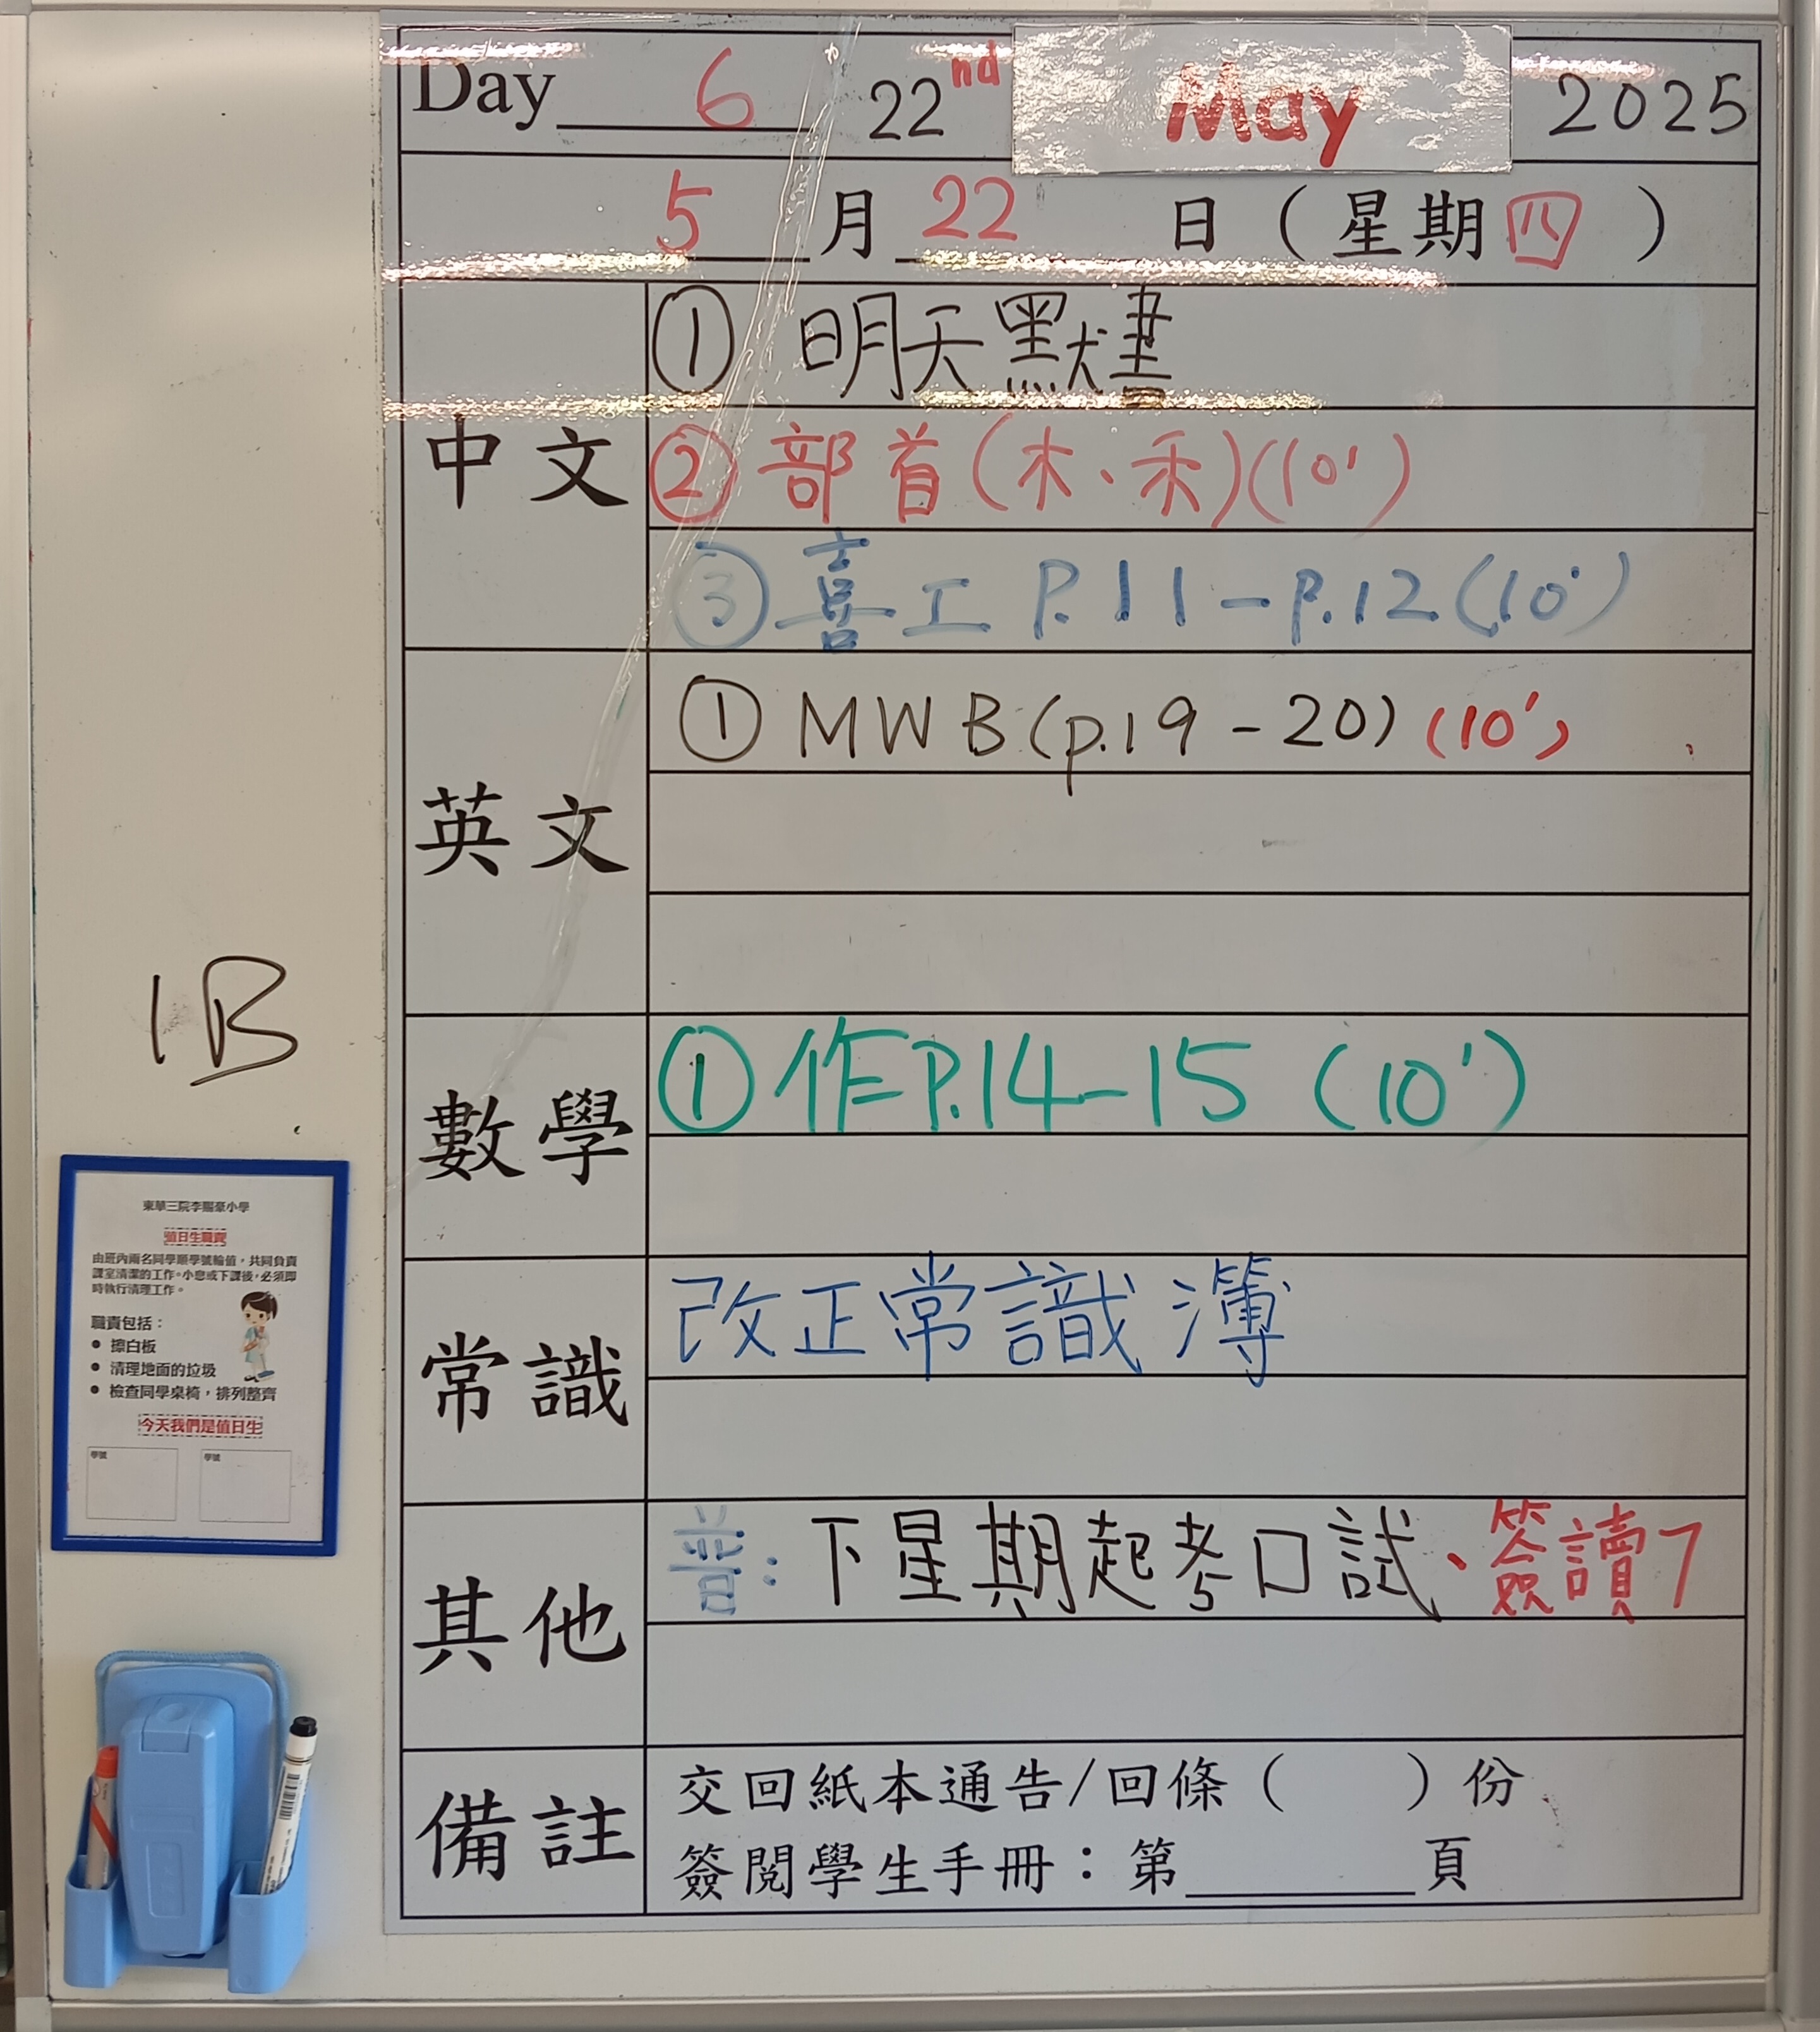 Day 6 22nd May 2025
5月22日（星期四）
中文
① 明天默書
② 部首(木、禾)(10')
③ 喜工 P.11-P.12(10')
英文
① MWB(p.19-20)(10')
數學
① 作P.14-15 (10')
常識
改正常識簿
其他
普：下星期起考口試、簽讀7
備註
交回紙本通告/回條（ ）份
簽閱學生手冊：第______頁
1B
東華三院李賜豪小學
值日生職責
由班內兩名同學順學號輪值，共同負責
課室清潔的工作。小息或下課後，必須即
時執行清理工作。
職責包括：
● 擦白板
● 清理地面的垃圾
● 檢查同學桌椅，排列整齊
今天我們是值日生
學號 學號